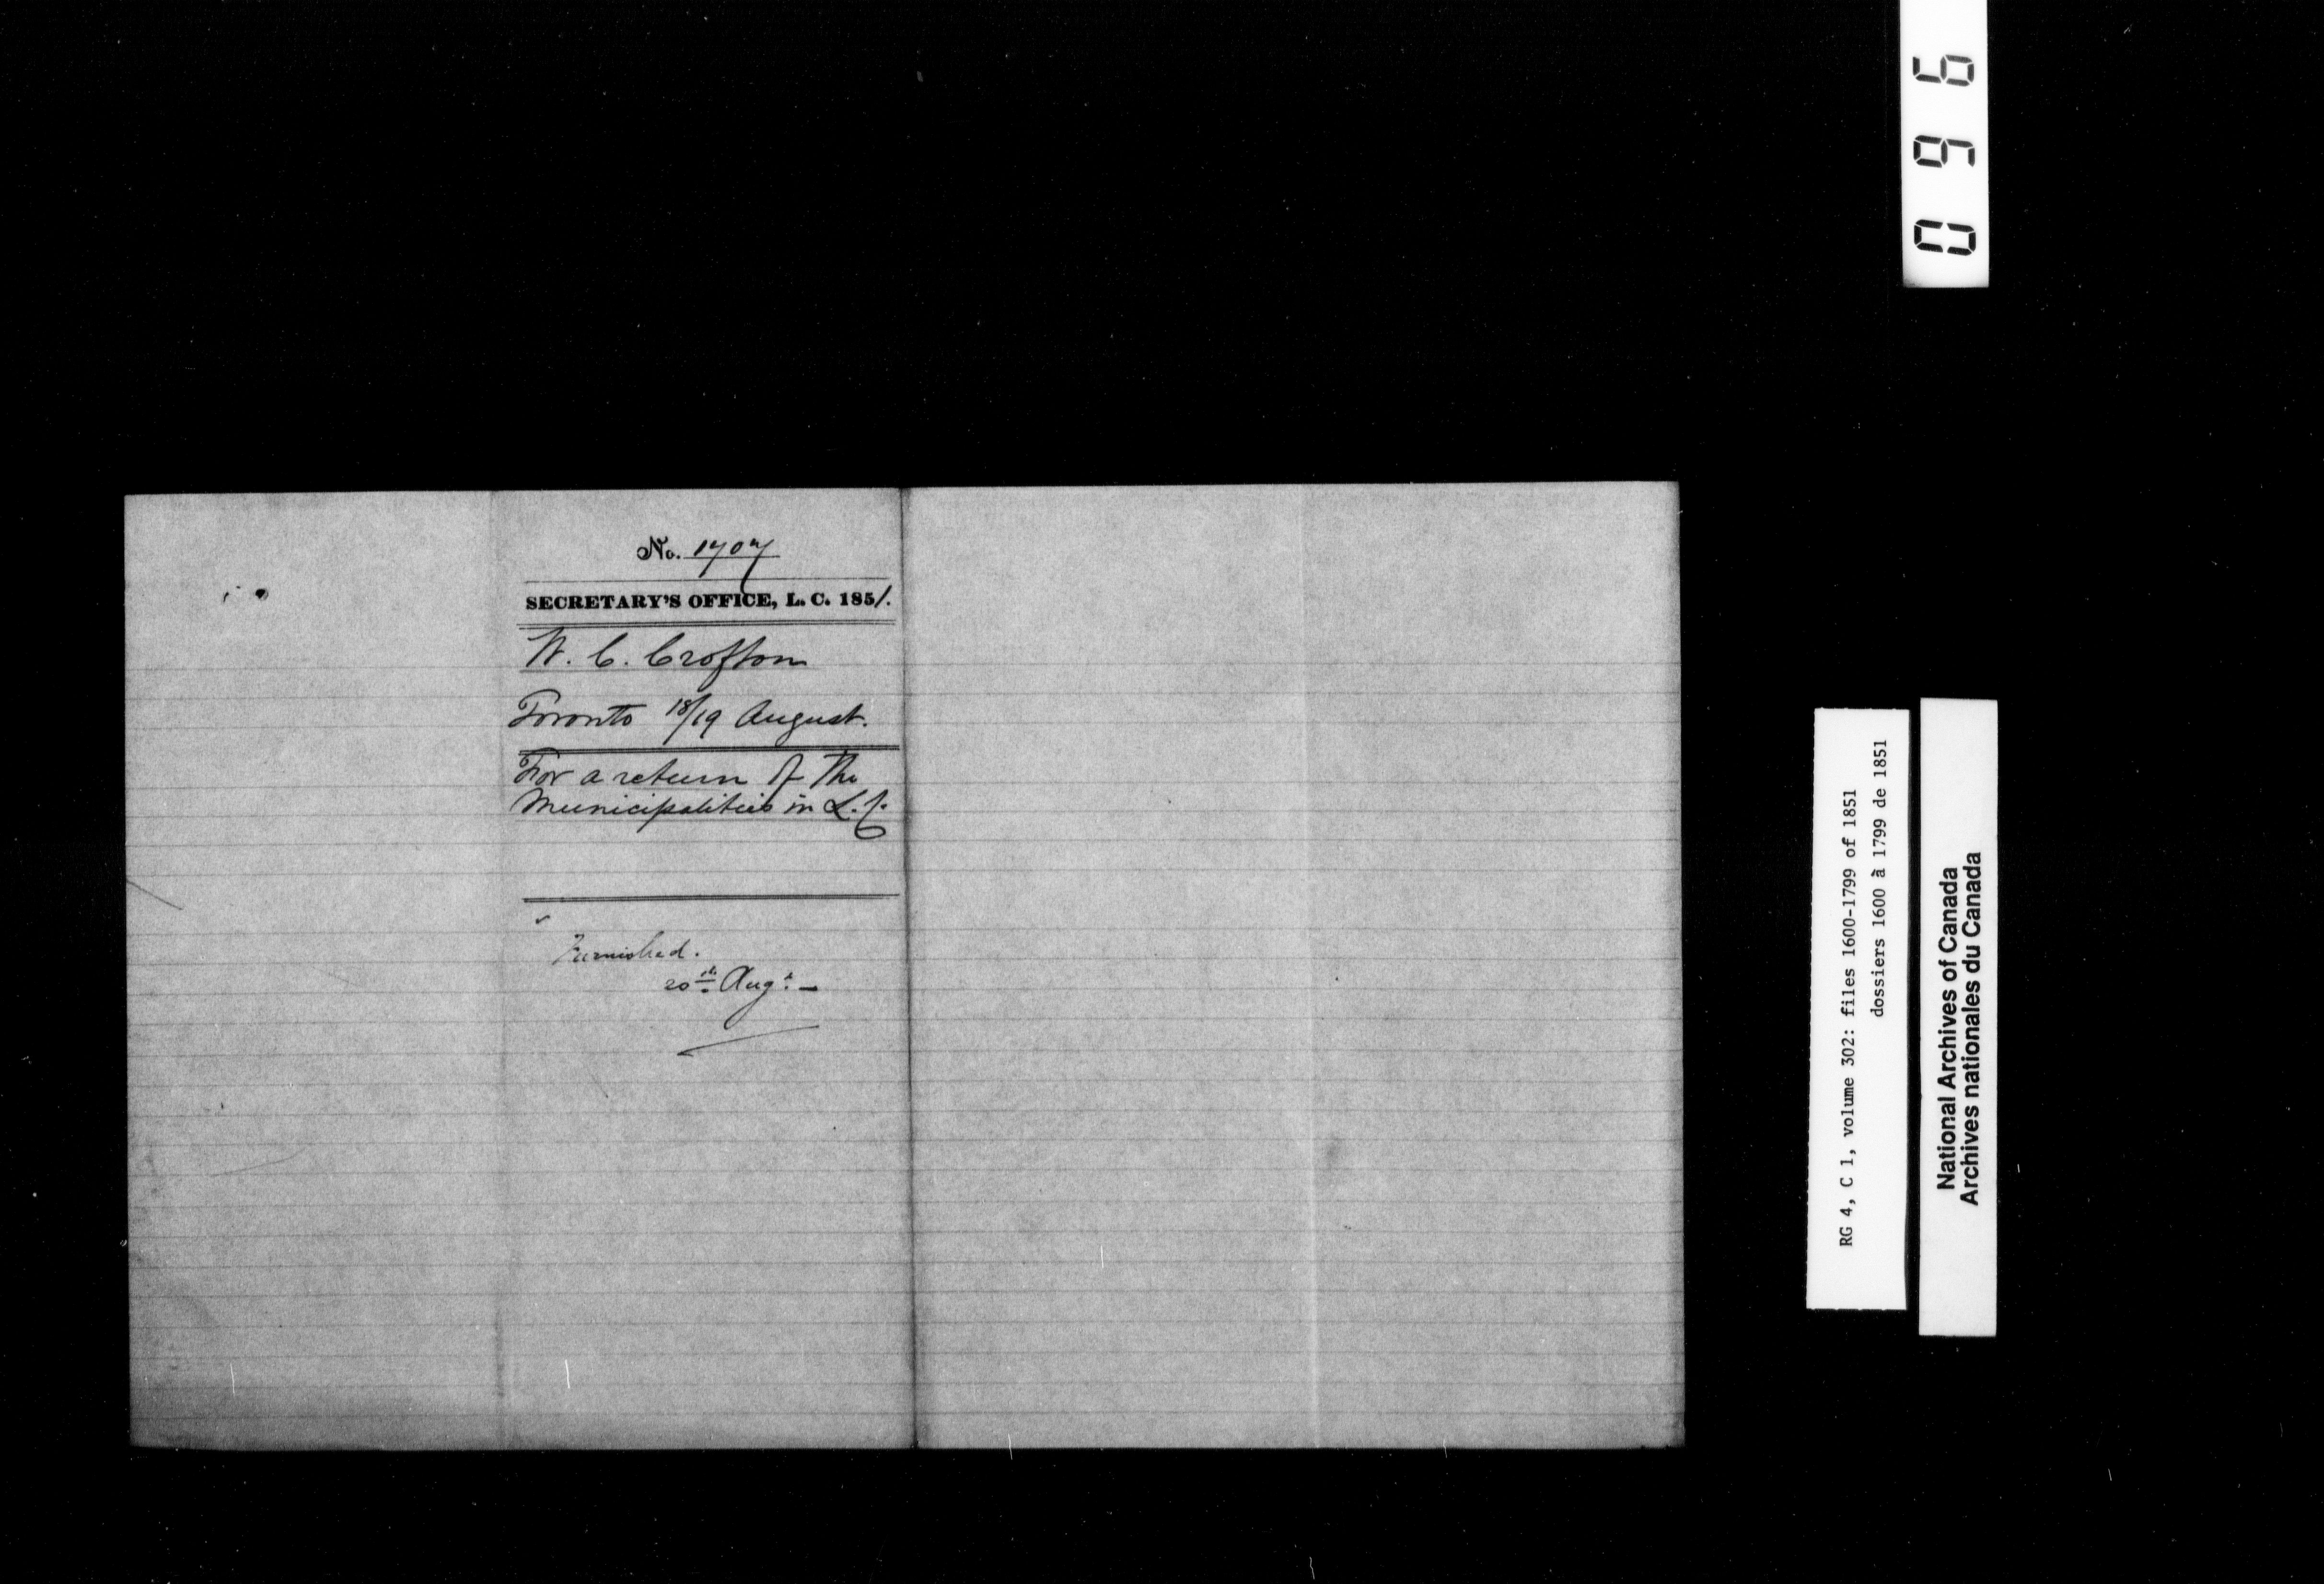 No. 1707
SECRETARY'S OFFICE, L. C. 1851.
W. C. Crofton
Toronto 18/19 August.
For a return of the
Municipalities in L. C.
Furnished.
20th Augt. —
0960
RG 4, C 1, volume 302: files 1600-1799 of 1851
dossiers 1600 à 1799 de 1851
National Archives of Canada
Archives nationales du Canada